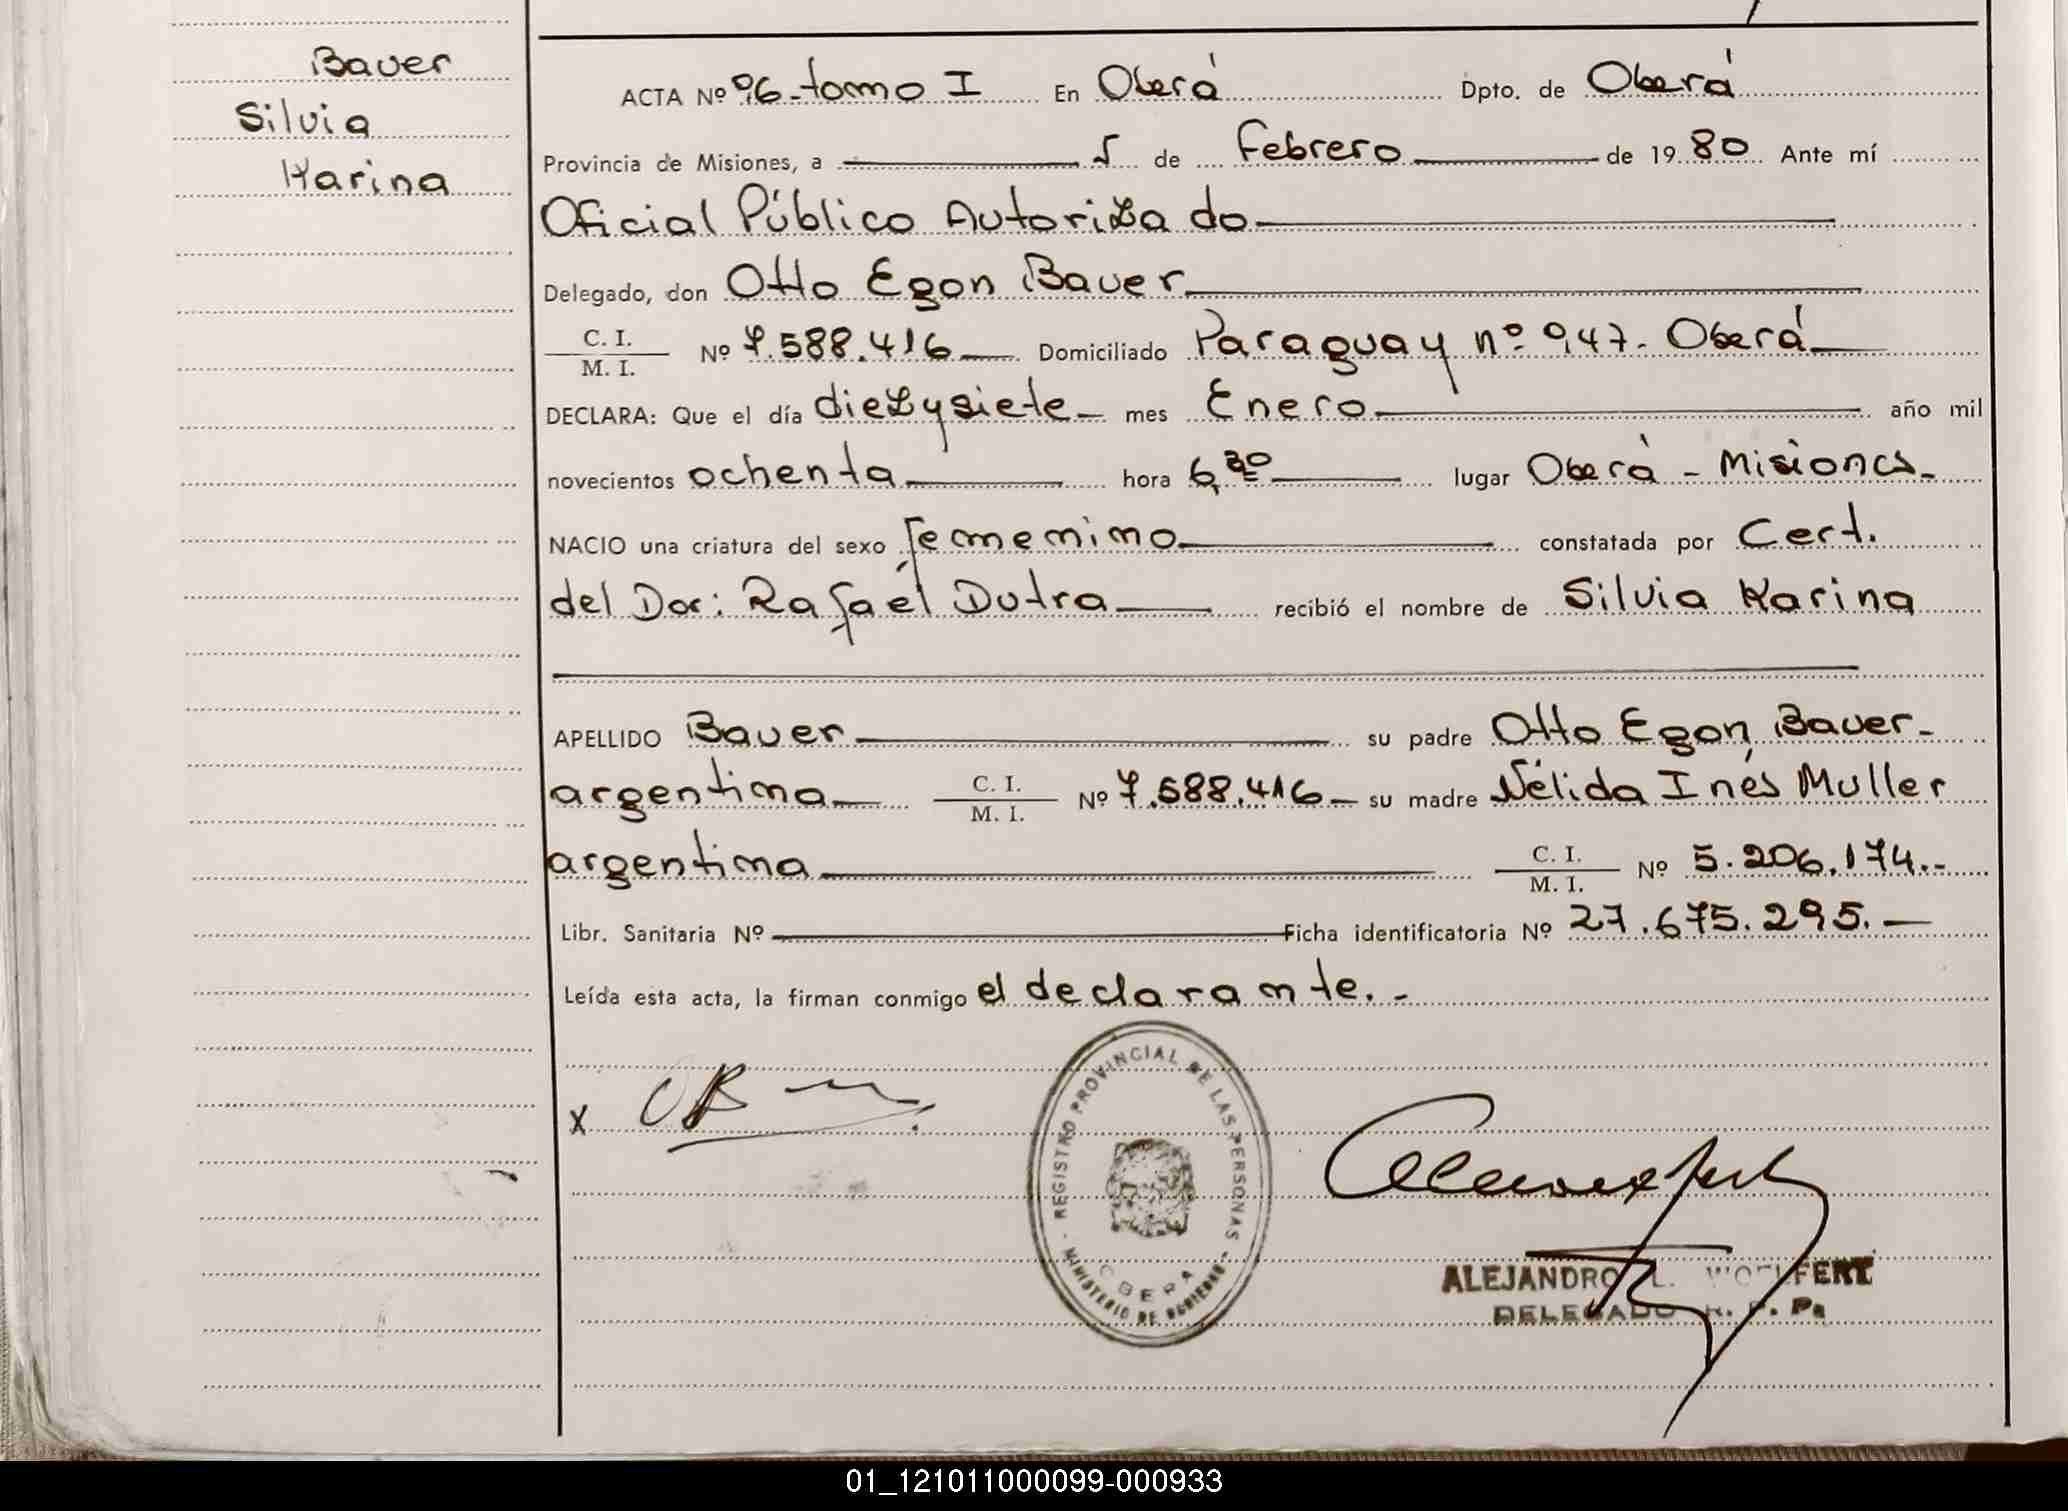 Bauer
Silvia
Karina
ACTA Nº 96 - tomo I En Oberá Dpto. de Oberá
Provincia de Misiones, a 5 de Febrero de 1980 Ante mí
Oficial Público Autorizado
Delegado, don Otto Egon Bauer
C. I.
M. I. Nº 7.588.416 Domiciliado Paraguay nº 947. Oberá
DECLARA: Que el día diezysiete mes Enero año mil
novecientos ochenta hora 6,30 lugar Oberá - Misiones
NACIO una criatura del sexo femenino constatada por Cert.
del Dor: Rafaél Dutra recibió el nombre de Silvia Karina
APELLIDO Bauer su padre Otto Egon Bauer
argentina C. I.
M. I. Nº 7.588.416 su madre Nélida Inés Muller
argentina C. I.
M. I. Nº 5.206.174.-
Libr. Sanitaria Nº Ficha identificatoria Nº 27.675.295.-
Leída esta acta, la firman conmigo el declarante.-
X
REGISTRO PROVINCIAL DE LAS PERSONAS
OBERA
MINISTERIO DE GOBIERNO
ALEJANDRO L. WOELFERT
DELEGADO R. P. Ps
01_121011000099-000933